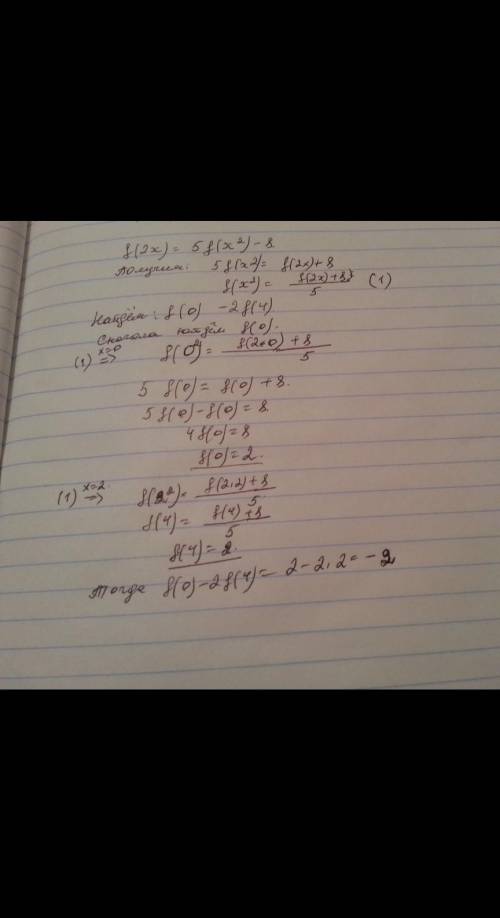 f(2x) = 5f(x²) - 8
Получим: 5f(x²) = f(2x) + 8
f(x²) = (f(2x) + 8) / 5 (1)
Найдём: f(0) - 2f(4)
Сначала найдём f(0).
(1) x=0 ⇒ f(0²) = (f(2·0) + 8) / 5
5 f(0) = f(0) + 8.
5f(0) - f(0) = 8
4f(0) = 8
f(0) = 2.
(1) x=2 ⇒ f(2²) = (f(2·2) + 8) / 5
f(4) = (f(4) + 8) / 5
f(4) = 2.
Тогда f(0) - 2f(4) = 2 - 2·2 = -2